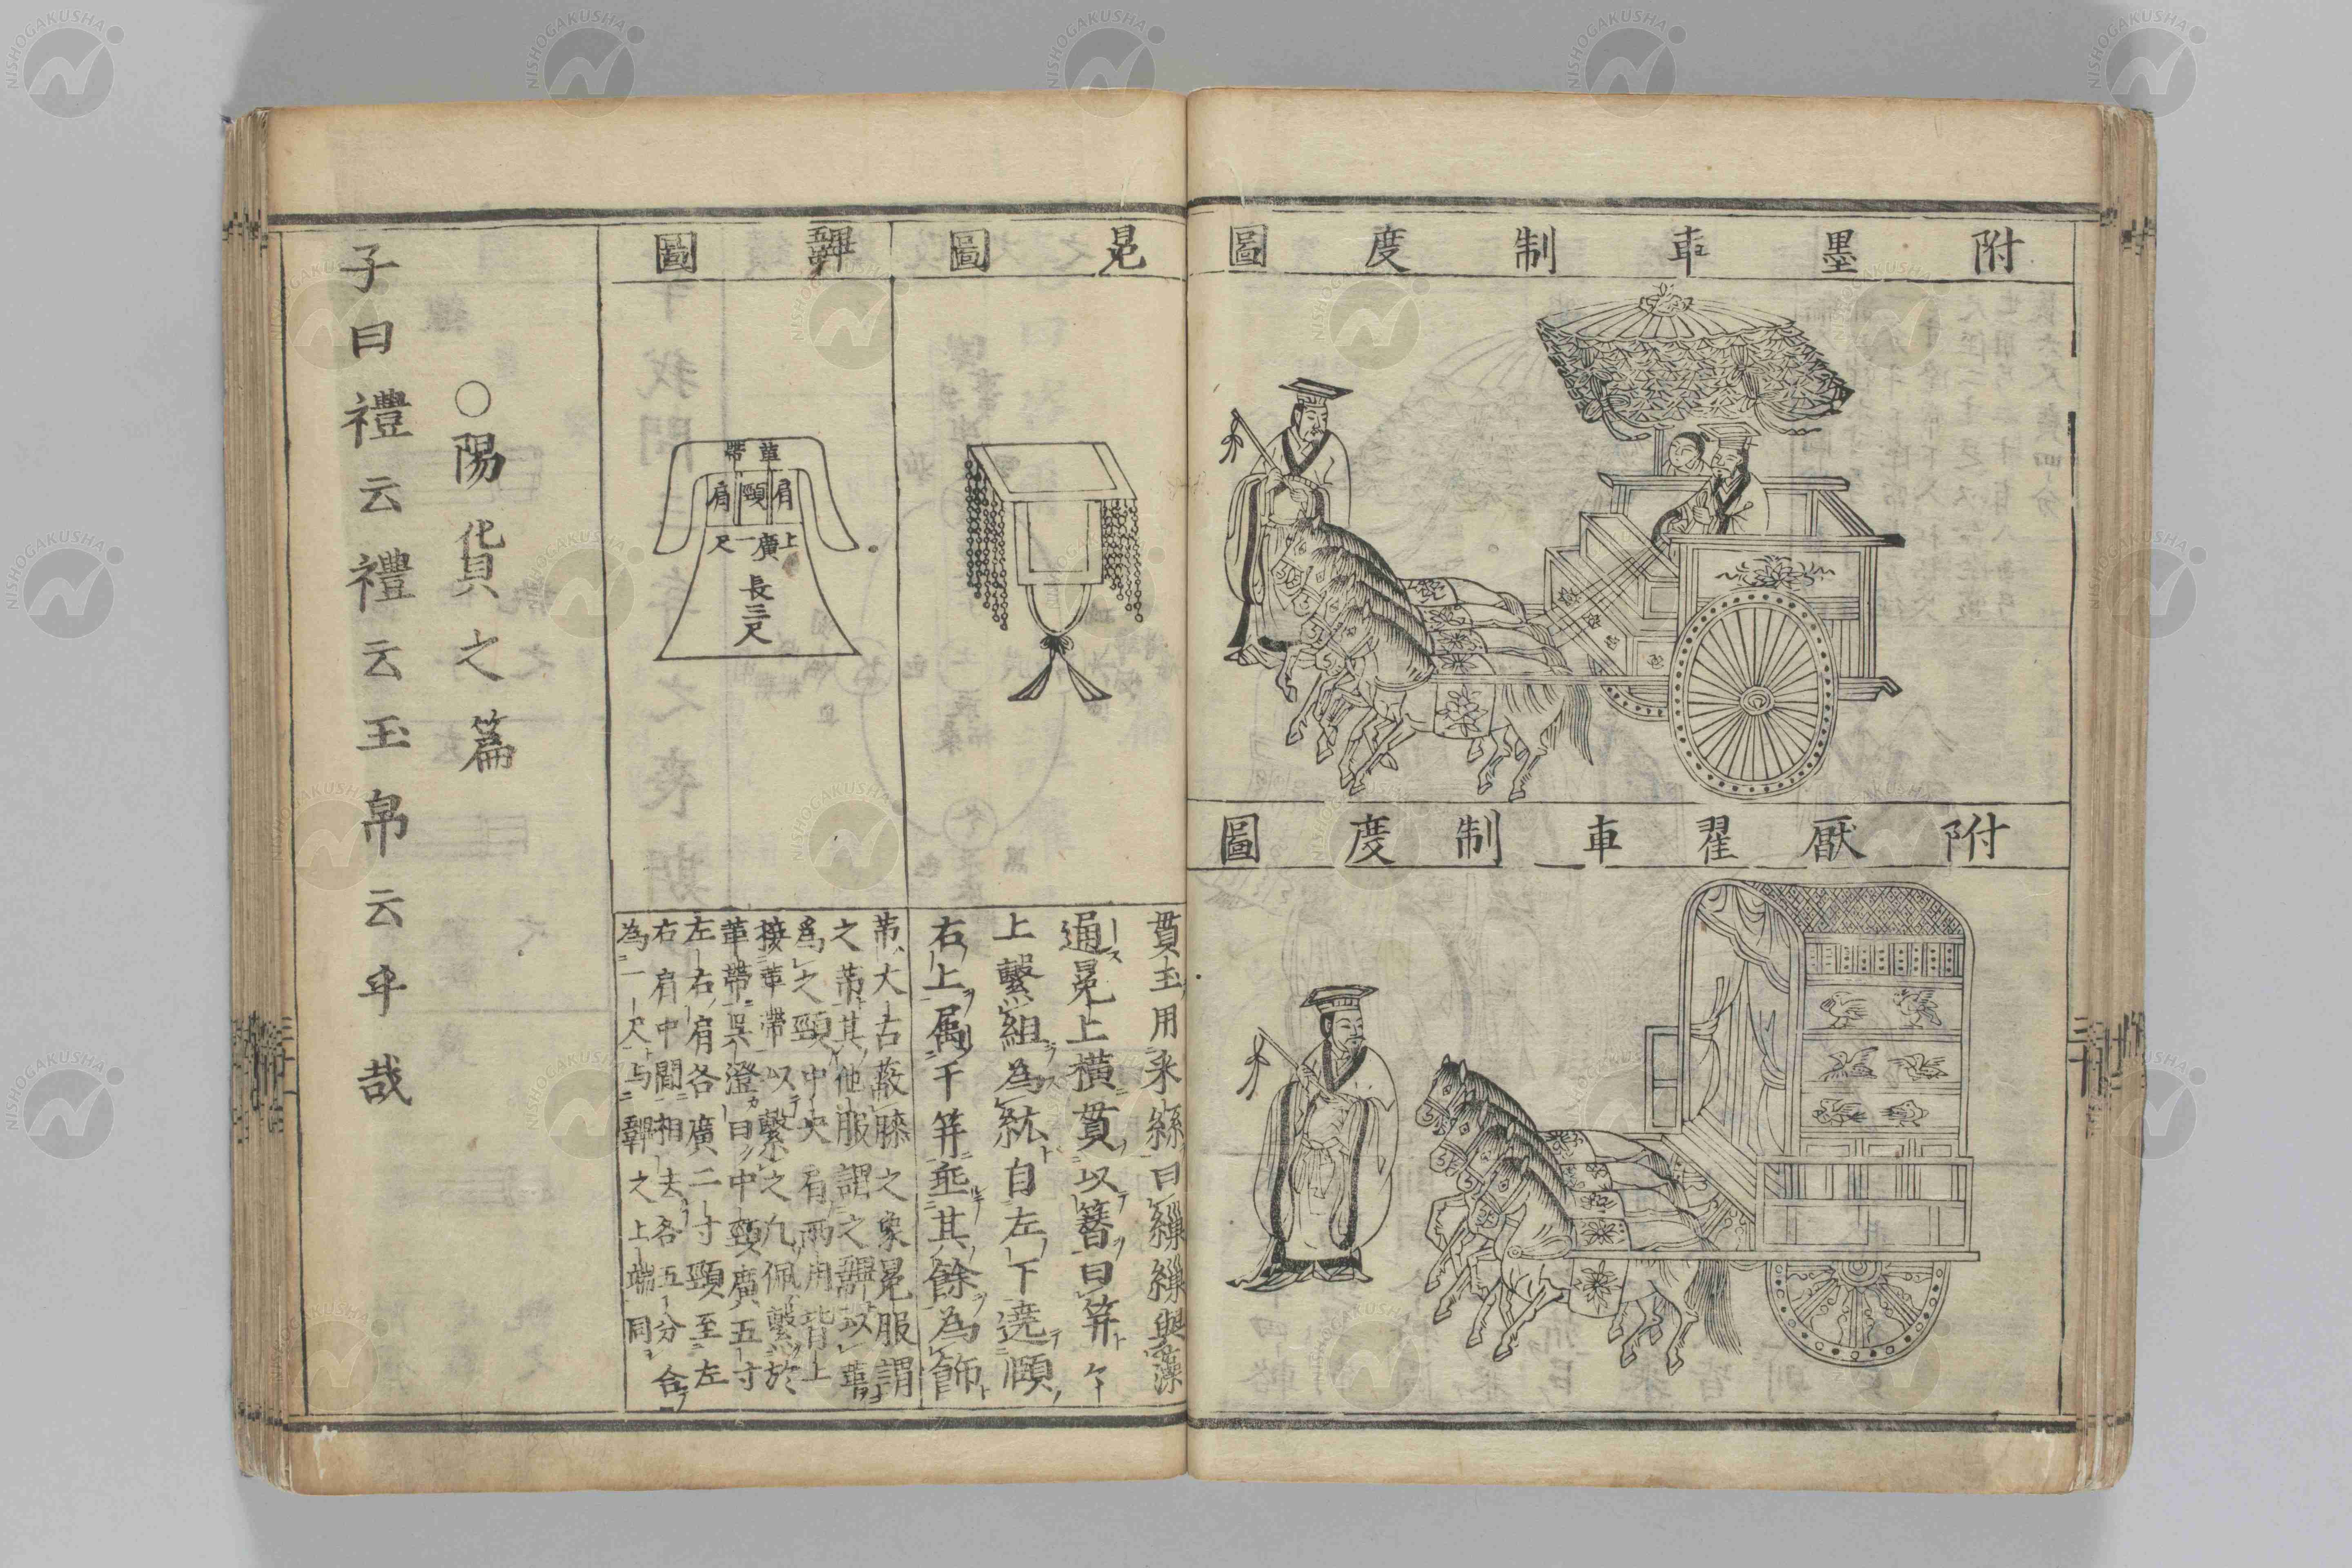 附墨車制度圖
附厭翟車制度圖
冕圖
貫玉用采絲曰繅繅與藻
通冕上横貫以簪曰笄々
上繫組為紘自左下遶頤
右上属于笄垂其餘為飾
韠圖
革帶
肩頸肩
上廣一尺
長三尺
芾大古蔽膝之象冕服謂
之芾其他服謂之韠以革
爲之頸中央肩兩角皆上
接革帶以繫之凡佩繫於
革帶吳澄曰中頸廣五寸
左右肩各廣二寸頸至左
右肩中間相去各五分合
為一尺与韠之上端同
○陽貨之篇
子曰禮云禮云玉帛云乎哉
NISHOGAKUSHA